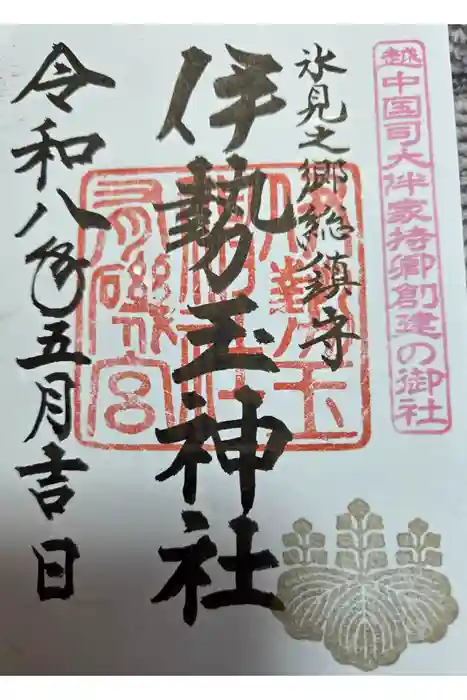 越中国司大伴家持卿創建の御社
氷見之郷総鎮守
伊勢玉神社
令和八年五月吉日